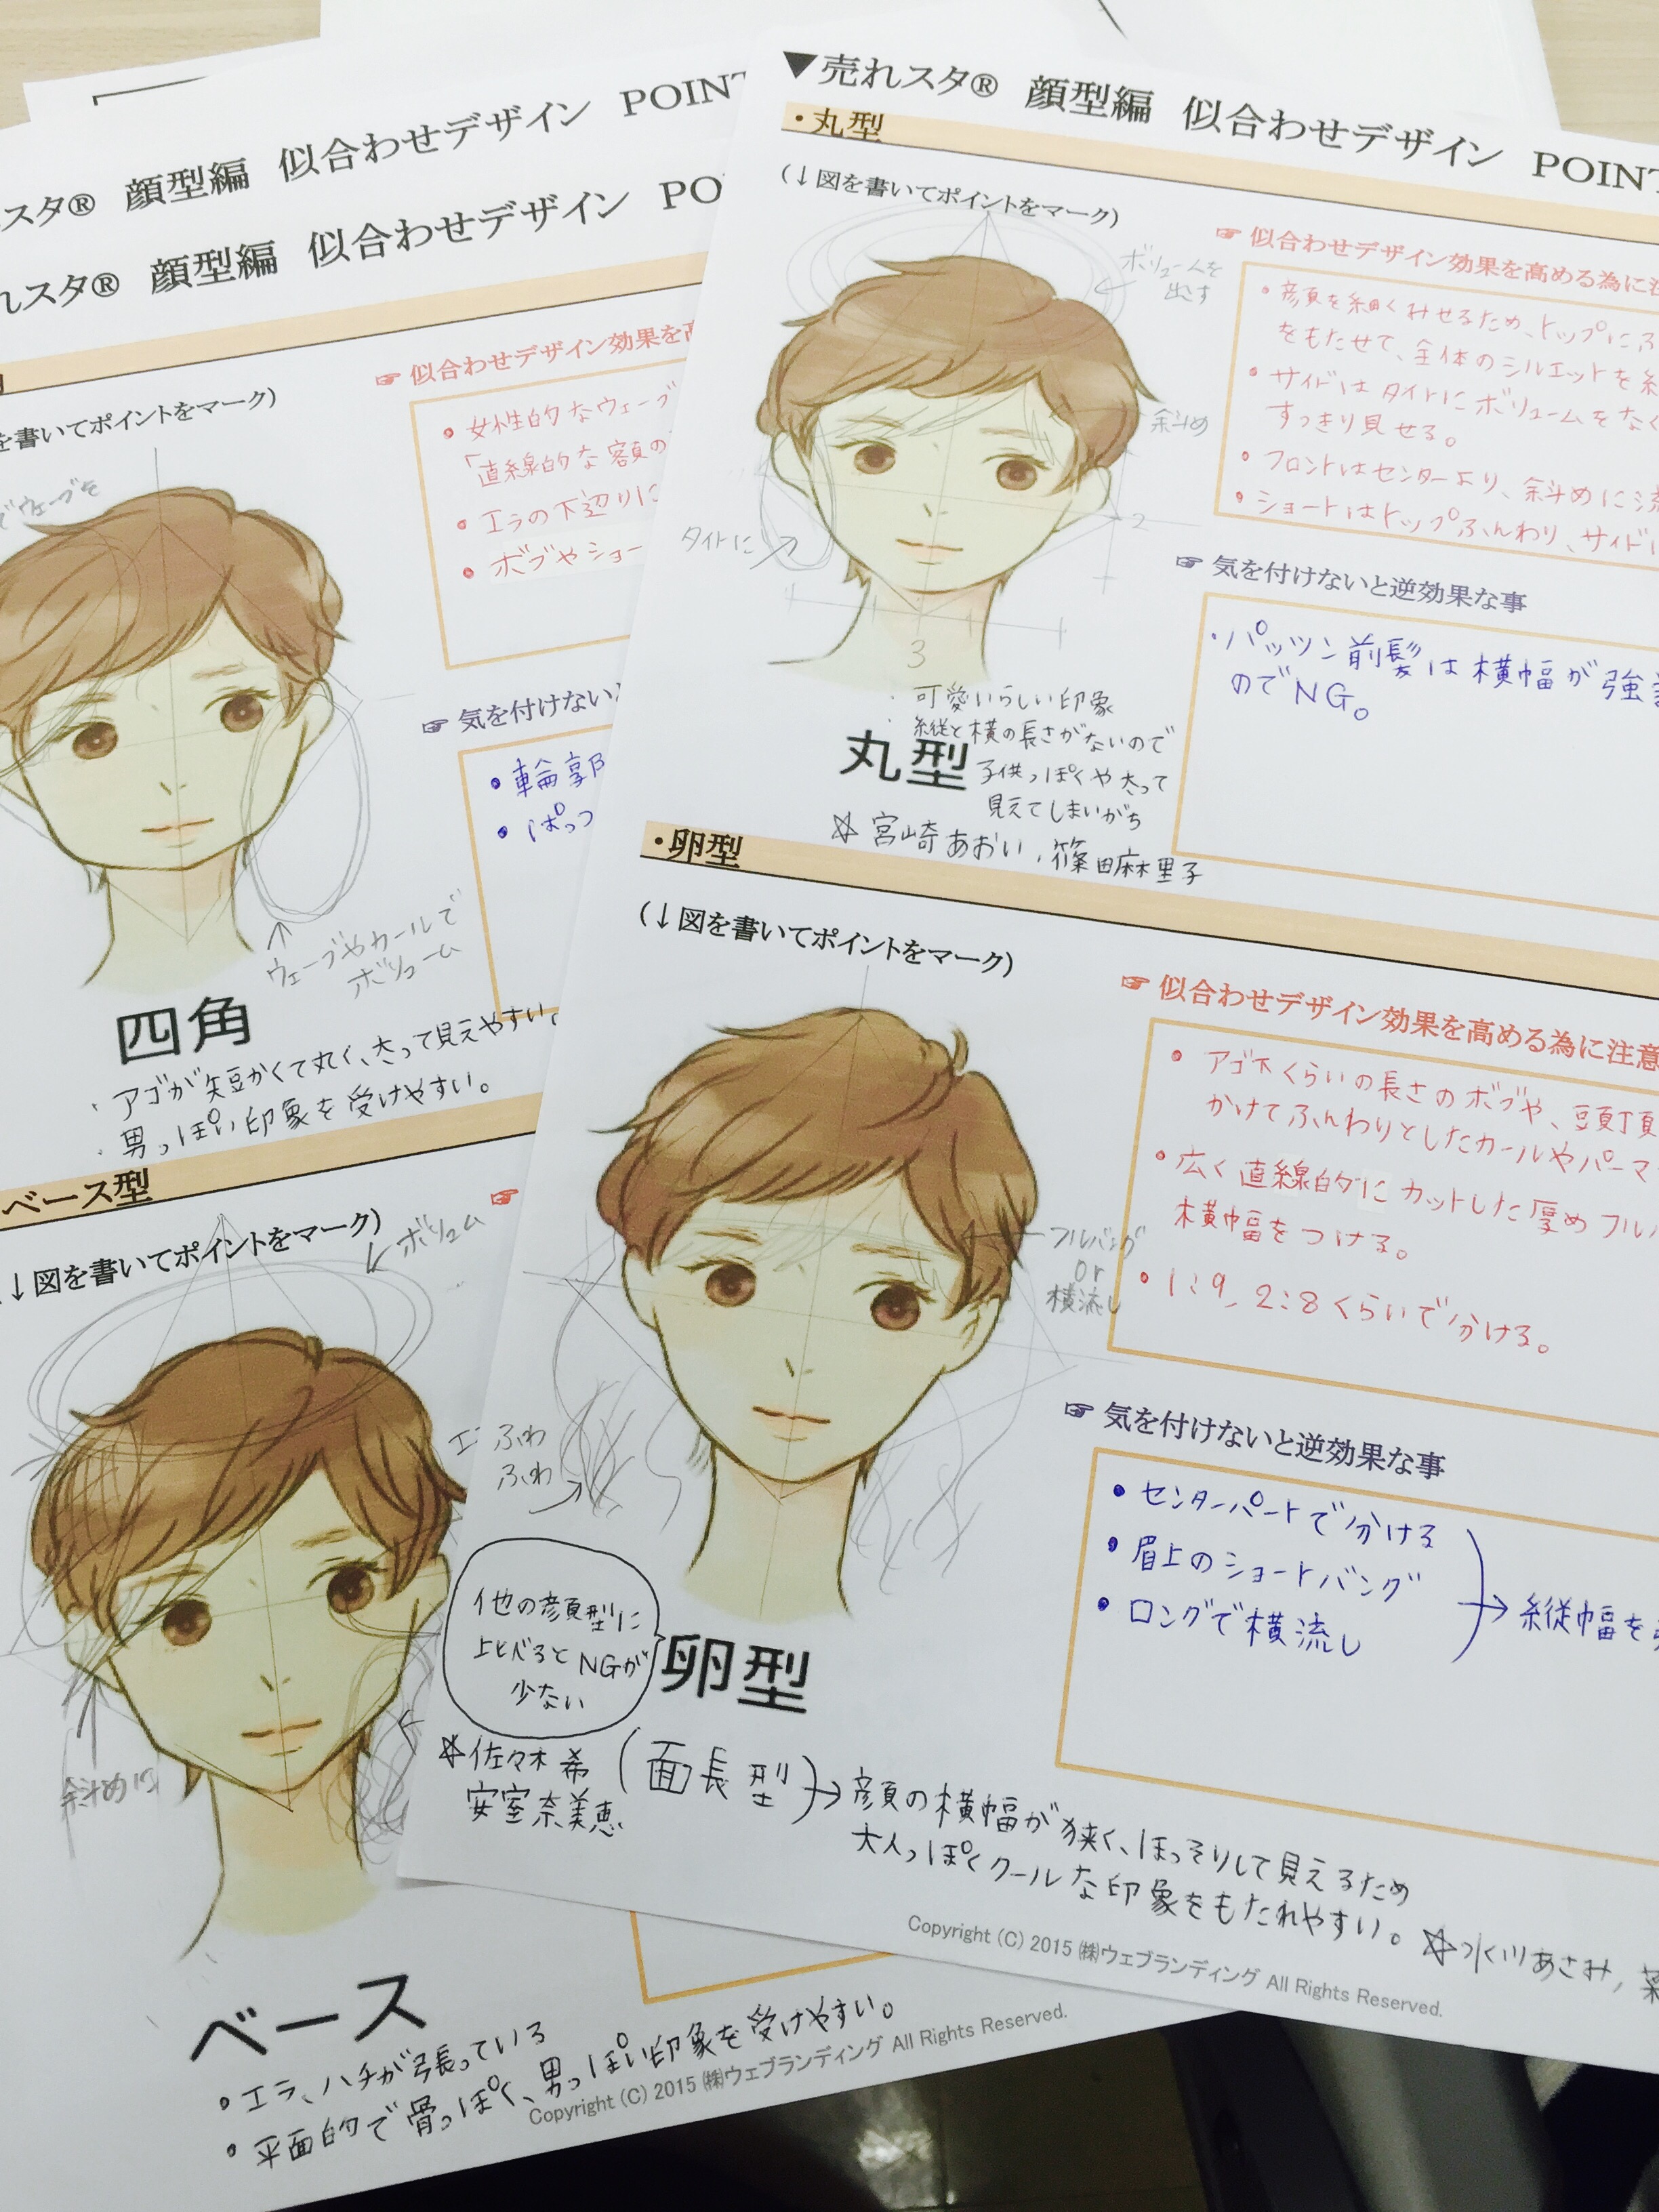 スタ® 顔型編 似合わせデザイン POINT
れスタ® 顔型編 似合わせデザイン PO
を書いてポイントをマーク)
でウェーブを
☞ 似合わせデザイン効果を高
・女性的なウェーブ
「直線的な
・エラの下辺りに
・ボブやショー
☞ 気を付けない
・輪郭
・ぱっつ
ウェーブやカールで
ボリューム
四角
・アゴが短かくて丸く、太って見えやすい。
・男っぽい印象を受けやすい。
ベース型
(↓図を書いてポイントをマーク)
ボリューム
斜めに
ベース
・エラ、ハチが張っている
・平面的で骨っぽく、男っぽい印象を受けやすい。
Copyright (C) 2015 ㈱ウェブランディング All Rights Reserved.
▼売れスタ® 顔型編 似合わせデザイン POINT
・丸型
(↓図を書いてポイントをマーク)
ボリュームを
出す
斜め
タイトに
2
3
☞ 似合わせデザイン効果を高める為に注
・顔を細くみせるため、トップにふ
をもたせて、全体のシルエットを
・サイドはタイトにボリュームをなく
すっきり見せる。
・フロントはセンターより、斜めに流
・ショートはトップふんわり、サイドに
☞ 気を付けないと逆効果な事
・パッツン前髪は横幅が強
のでNG。
・可愛いらしい印象
・縦と横の長さがないので
丸型
子供っぽくや太って
見えてしまいがち
☆宮崎あおい、篠田麻里子
・卵型
(↓図を書いてポイントをマーク)
フルバング
or
横流し
ふわ
ふわ
☞ 似合わせデザイン効果を高める為に注意
・アゴ下くらいの長さのボブや、頭頂
かけてふんわりとしたカールやパーマ
・広く直線的にカットした厚めフル
横幅をつける。
・1:9, 2:8くらいで分ける。
☞ 気を付けないと逆効果な事
・センターパートで分ける
・眉上のショートバング
・ロングで横流し
→縦幅を
他の顔型に
比べるとNGが
少ない
卵型
☆佐々木 希
安室奈美恵
(面長型)→顔の横幅が狭く、ほっそりして見えるため
大人っぽくクールな印象をもたれやすい。☆水川あさみ,
Copyright (C) 2015 ㈱ウェブランディング All Rights Reserved.